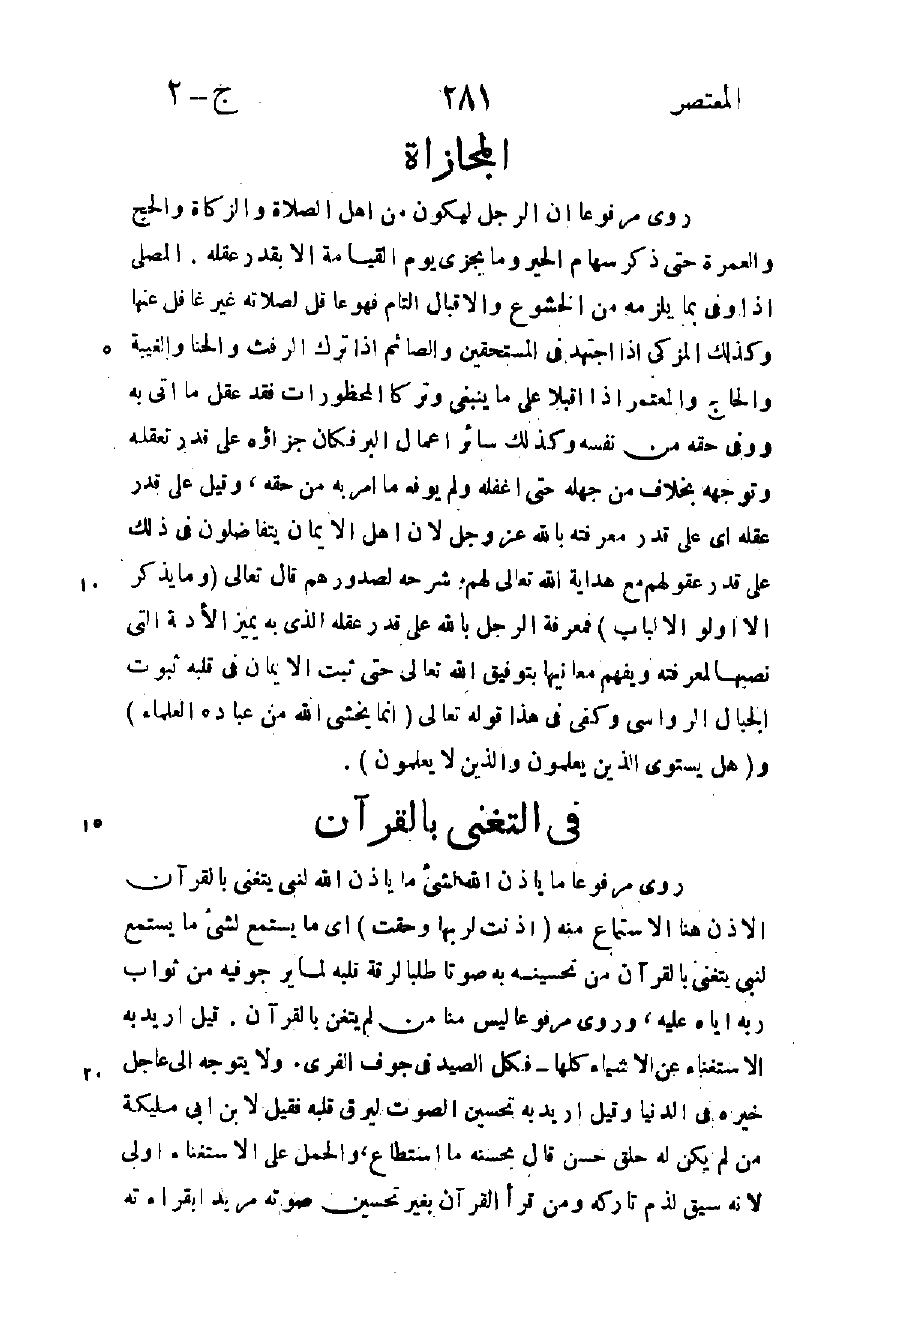 المعتصر ٢٨١ ج-٢
المجازاة
روى مرفوعا ان الرجل ليكون من اهل الصلاة والزكاة والحج
والعمرة حتى ذكر سهام الخير وما يجزى يوم القيامة الا بقدر عقله . المصلى
اذا وفى بما يلزمه من الخشوع والاقبال التام فهو عاقل لصلاته غير غافل عنها
وكذلك المزكى اذا اجتهد فى المستحقين والصائم اذا ترك الرفث والخنا والغيبة ٥
والحاج والمعتمر اذا اقبلا على ما ينبغى وتركا المحظورات فقد عقل ما اتى به
ووفى حقه من نفسه وكذلك سائر اعمال البر فكان جزاؤه على قدر تعقله
وتوجهه بخلاف من جهله حتى اغفله ولم يوفه ما امر به من حقه ، وقيل على قدر
عقله اى على قدر معرفته بالله عز وجل لان اهل الايمان يتفاضلون فى ذلك
على قدر عقولهم مع هداية الله تعالى لهم شرحه لصدورهم قال تعالى (وما يذكر ١٠
الا اولو الالباب) فمعرفة الرجل بالله على قدر عقله الذى به يميز الأدلة التى
نصبها لمعرفته ويفهم معانيها بتوفيق الله تعالى حتى ثبت الايمان فى قلبه ثبوت
الجبال الرواسى وكفى فى هذا قوله تعالى (انما يخشى الله من عباده العلماء)
و(هل يستوى الذين يعلمون والذين لا يعلمون) .
فى التغنى بالقرآن ١٥
روى مرفوعا ما ياذن الله لشىء ما ياذن الله لنبى يتغنى بالقرآن
الاذن هنا الاستماع منه (اذنت لربها وحقت) اى ما يستمع لشىء ما يستمع
لنبى يتغنى بالقرآن من تحسينه به صوتا طلبا لرقة قلبه لما يرجو فيه من ثواب
ربه اياه عليه ، وروى مرفوعا ليس منا من لم يتغن بالقرآن . قيل اريد به
الاستغناء عن الاشياء كلها - فكل الصيد فى جوف الفرى . ولا يتوجه الى عاجل ٢٠
خيره فى الدنيا وقيل اريد به تحسين الصوت ليرق قلبه فقيل لابن ابى مليكة
من لم يكن له حلق حسن قال يحسنه ما استطاع ، والحمل على الاستغناء اولى
لانه سيق لذم تاركه ومن قرأ القرآن بغير تحسين صوته مريدا بقراءته